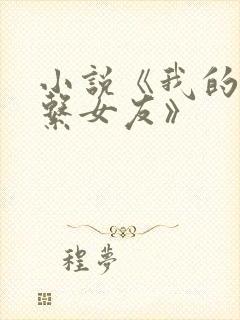 小說《我的
繫女友》
程夢